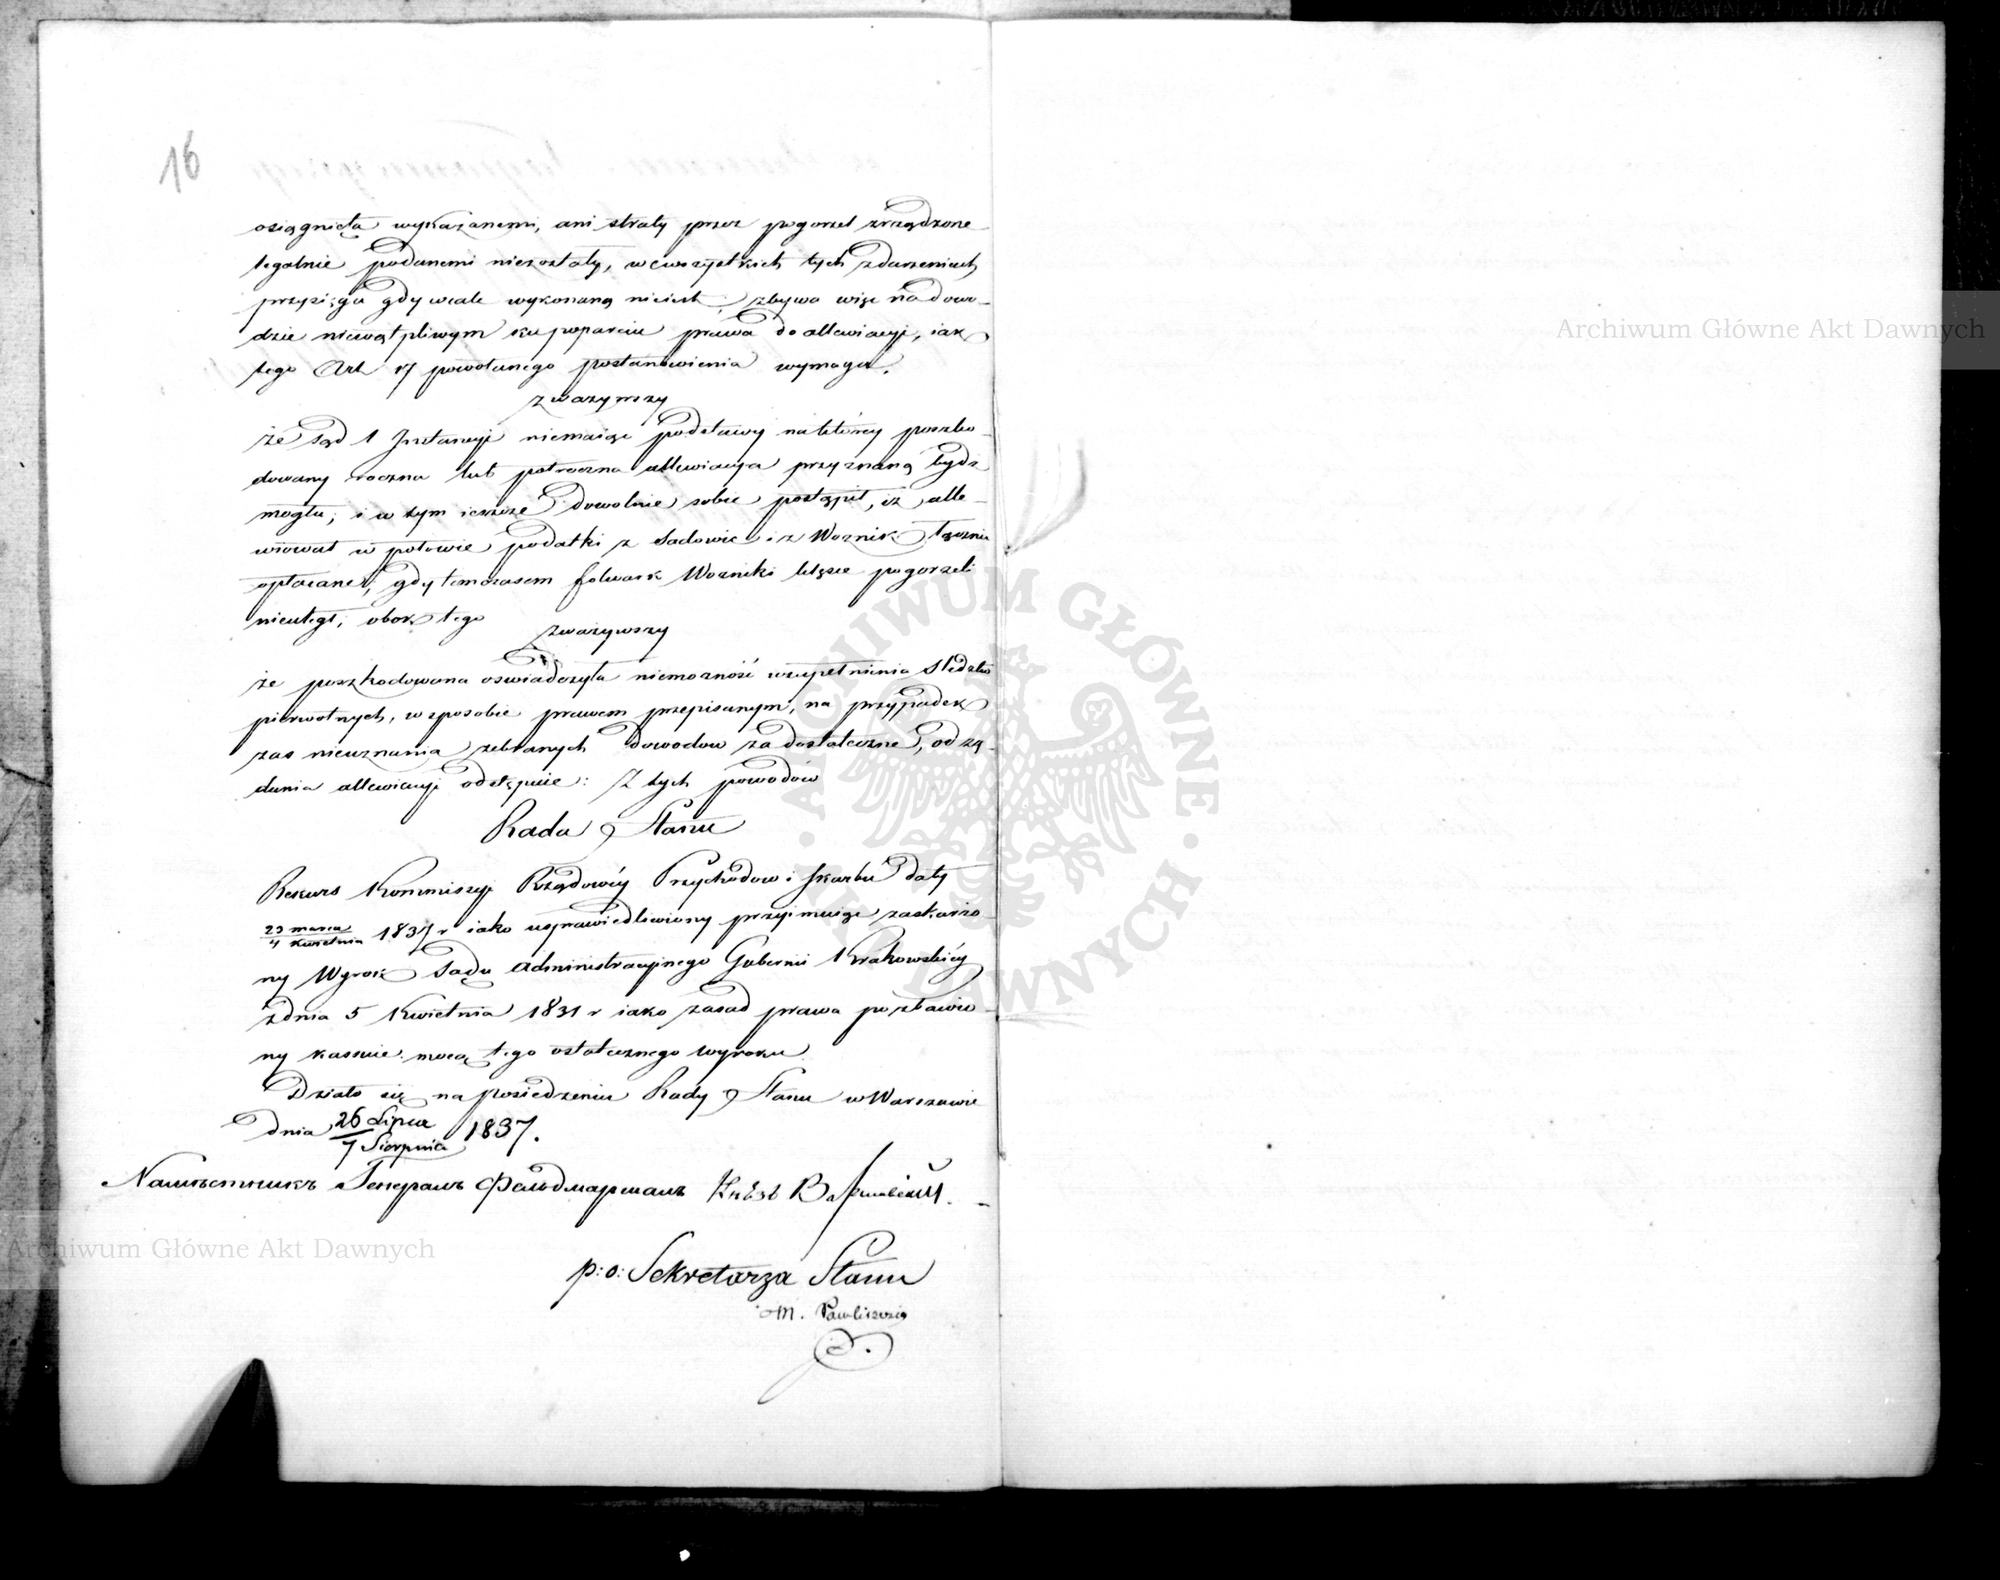 16
osiągnięta wykazanemi, ani straty przez pogorzel zrządzone
legalnie podanemi niezostały, wewszystkich tych zdarzeniach
przysięga gdy wcale wykonaną nieiest; zbywa więc na dowo-
dzie niewątpliwym ku poparciu prawa do allewiacyi, iak
tego Art 17 powołanego postanowienia wymaga.
zważywszy
że Sąd 1 Instancyi niemaiąc podstawy naktórey poszko-
dowany roczna lub potroczna allewiacya przyznaną bydź
mogła, i w tym ieszcze dowolnie sobie postąpił, iż alle-
wiował w połowie podatki z Sadowic i z Woznik łącznie
opłacane, gdy tymczasem folwark Wozniki klęsce pogorzeli
nieuległ, obok tego
zważywszy
że poszkodowana oswiadczyła niemożność uzupełnienia Sledztw
pierwotnych, w sposobie prawem przepisanym, na przypadek
zas nieuznania zebranych dowodow za dostateczne, od żą-
dania allewiacyi odstępuie: Z tych powodów
Rada Stanu
Rekurs Kommissyi Rządowéy Przychodow i Skarbu daty
23 marca / 4 Kwietnia 1837 r iako usprawiedliwiony przyimuiąc zaskarżo-
ny Wyrok Sądu Administracyinego Gubernii Krakowskiéy
z dnia 5 Kwietnia 1831 r iako zasad prawa pozbawio-
ny kassuie mocą tego ostatecznego wyroku.
Działo się na posiedzeniu Rady Stanu w Warszawie
dnia 26 Lipca / 7 Sierpnia 1837.
Намѣстникъ Генералъ Фельдмаршалъ Князь Варшавскій.
p: o: Sekretarza Stanu
M. Pawliszczew
Archiwum Główne Akt Dawnych
Archiwum Główne Akt Dawnych
· ARCHIWUM GŁÓWNE · AKT DAWNYCH